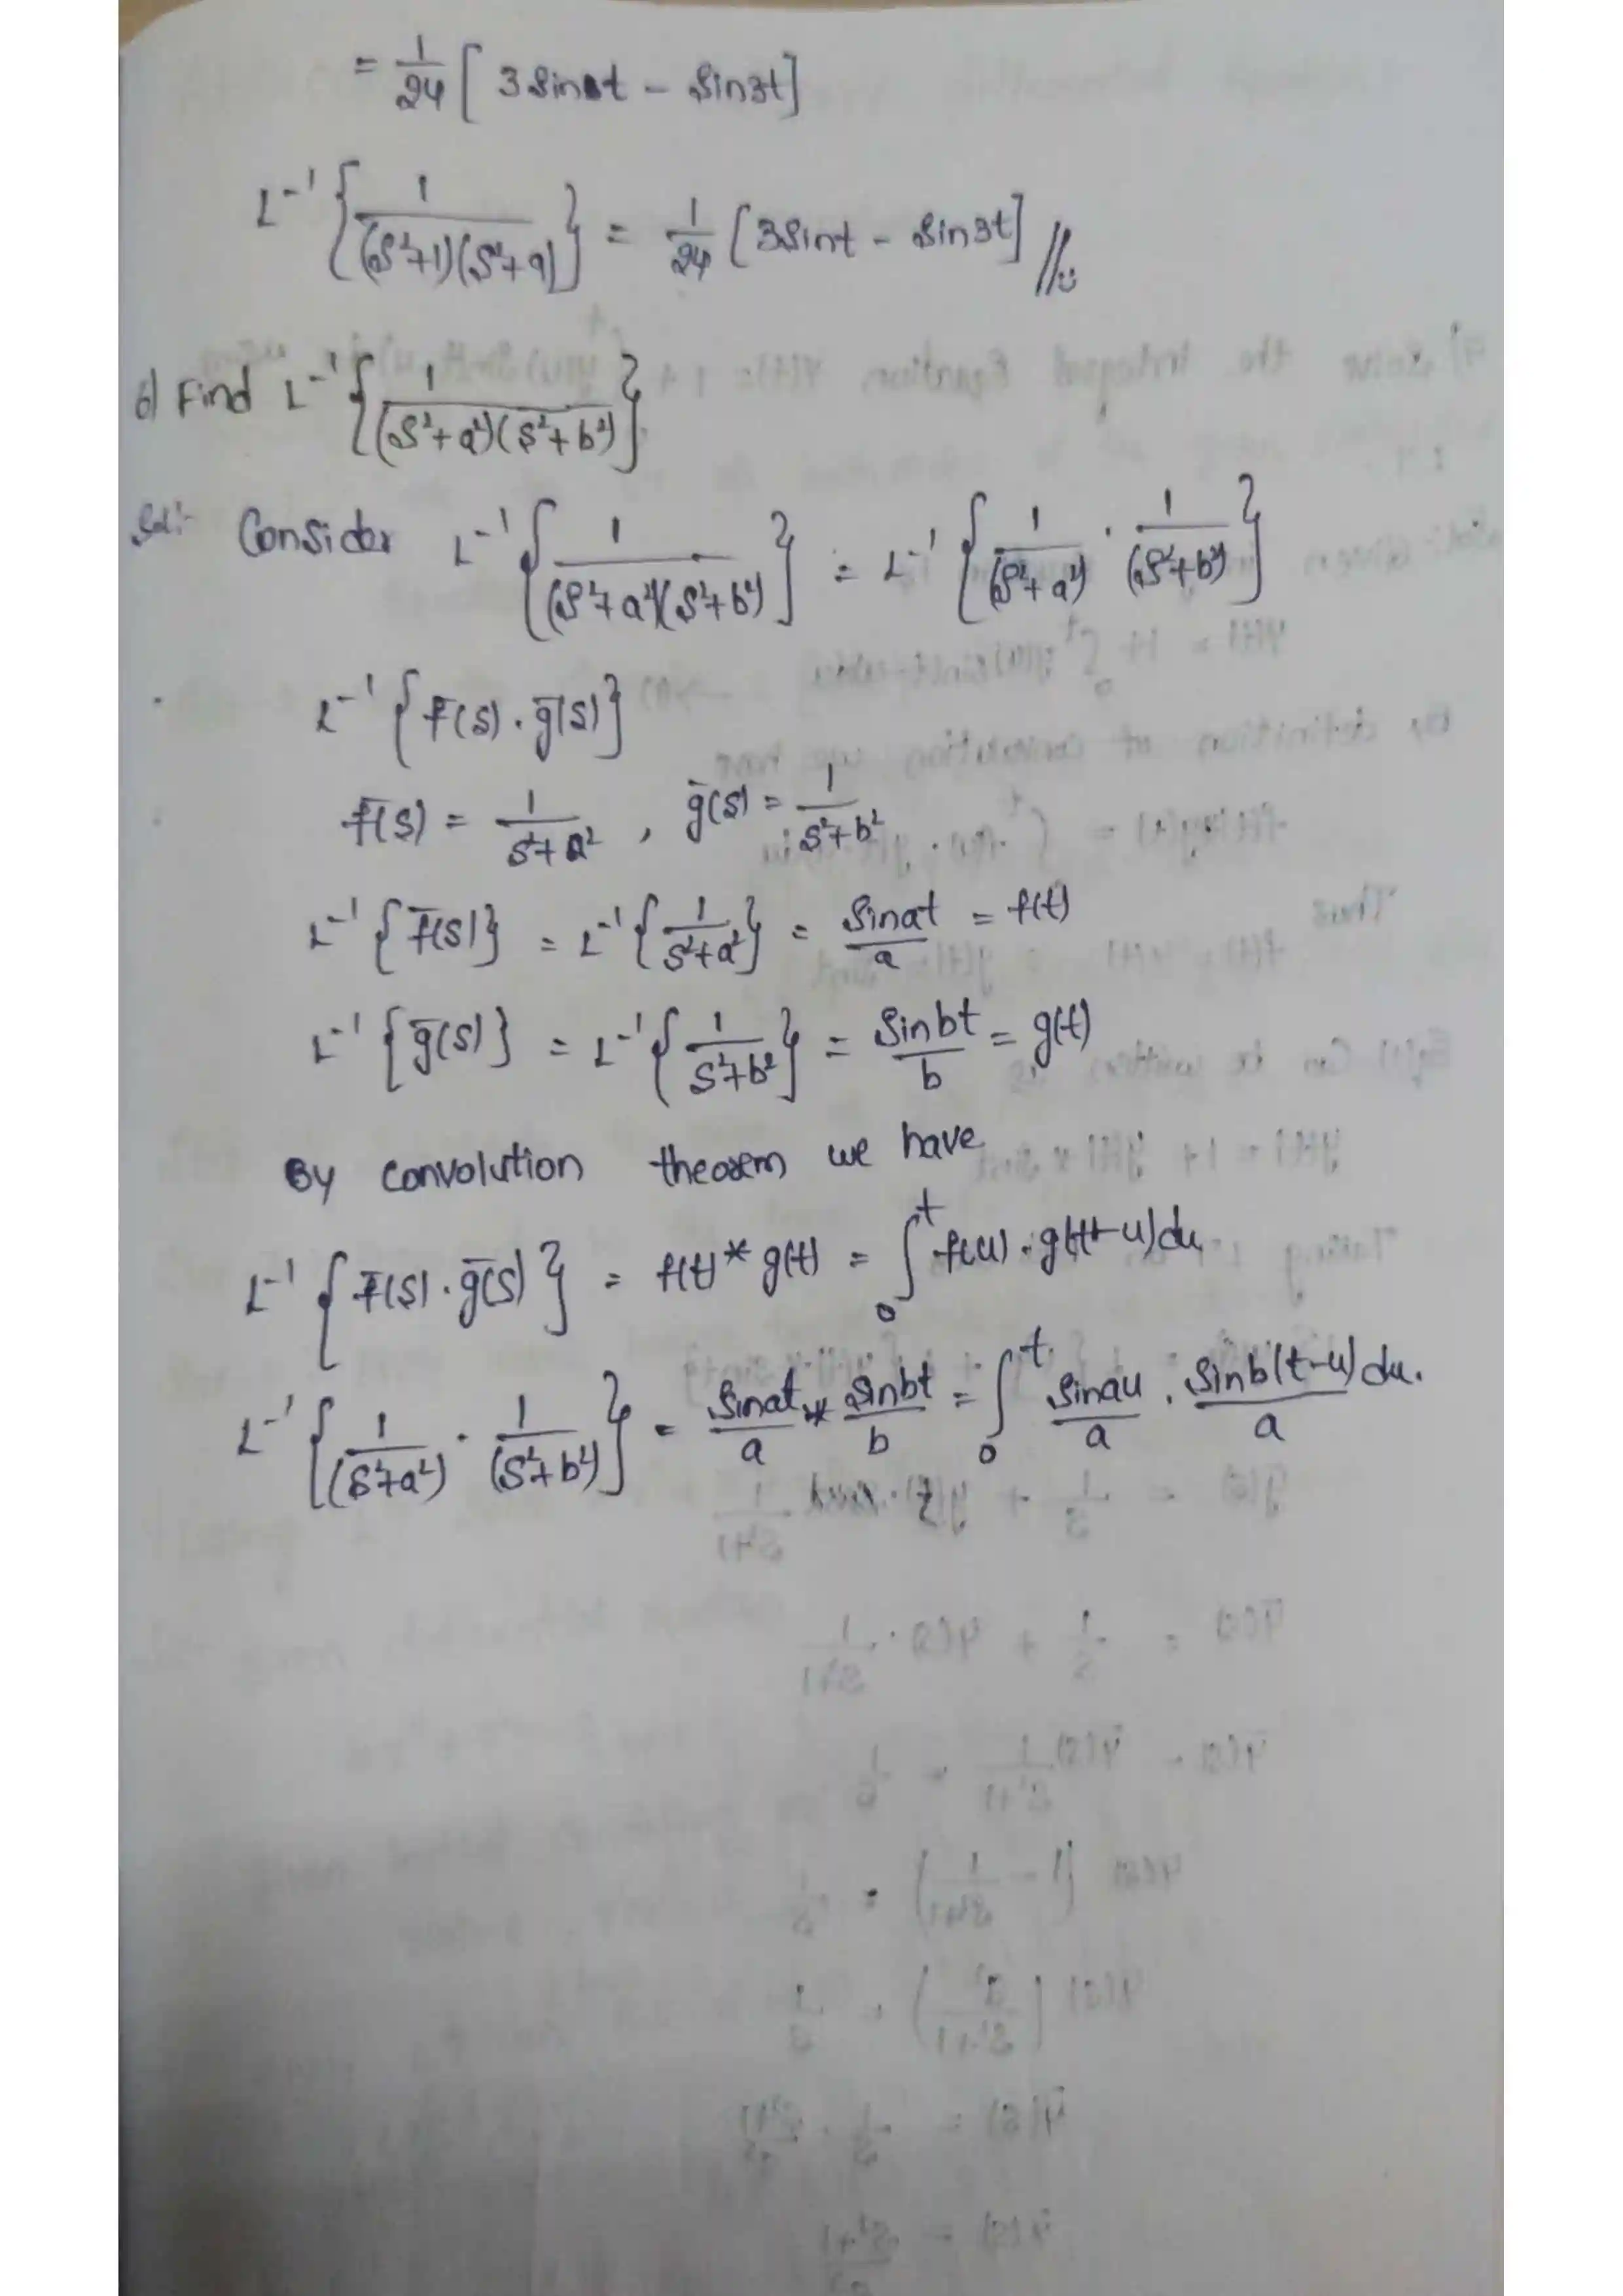 = 1/24 [ 3 Sin t - Sin3t]
L⁻¹ { 1 / (S²+1)(S²+9) } = 1/24 [3Sint - Sin3t] //
6) Find L⁻¹ { 1 / (S²+a²)(S²+b²) }
Sol:- Consider L⁻¹ { 1 / (S²+a²)(S²+b²) } = L⁻¹ { 1/(S²+a²) · 1/(S²+b²) }
L⁻¹ { f̄(s) · ḡ(s) }
f̄(s) = 1/S²+a² , ḡ(s) = 1/S²+b²
L⁻¹ { f̄(s) } = L⁻¹ { 1/S²+a² } = Sinat/a = f(t)
L⁻¹ { ḡ(s) } = L⁻¹ { 1/S²+b² } = Sinbt/b = g(t)
By convolution theorem we have
L⁻¹ { f̄(s) · ḡ(s) } = f(t) * g(t) = ∫₀ᵗ f(u) · g(t-u)du
L⁻¹ { 1/(S²+a²) · 1/(S²+b²) } = Sinat/a * Sinbt/b = ∫₀ᵗ Sinau/a · Sinb(t-u)/a du.